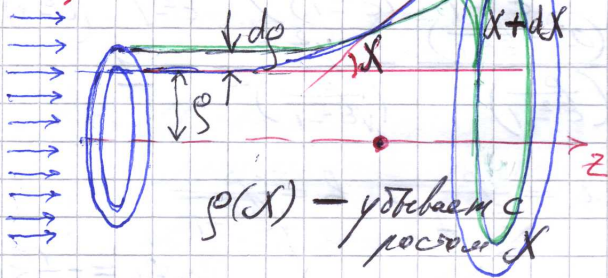 dρ
χ+dχ
χ
ρ
z
ρ(χ) — убывает с
ростом χ